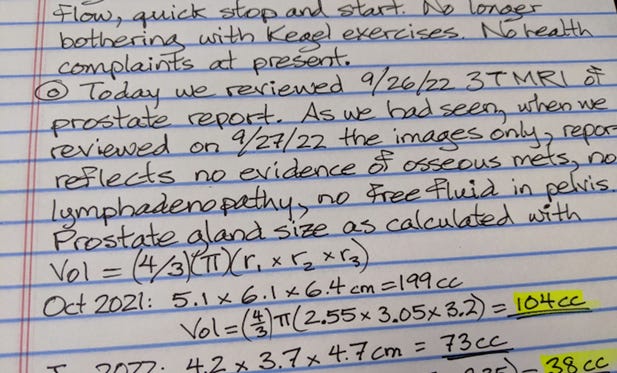 Flow, quick stop and start. No longer
bothering with Kegel exercises. No health
complaints at present.
⊙ Today we reviewed 9/26/22 3T MRI of
prostate report. As we had seen, when we
reviewed on 9/27/22 the images only, repor-
reflects no evidence of osseous mets, no
lymphadenopathy, no free fluid in pelvis.
Prostate gland size as calculated with
Vol = (4/3)(π)(r₁ × r₂ × r₃)
Oct 2021: 5.1 × 6.1 × 6.4 cm = 199 cc
Vol = (4/3)π(2.55 × 3.05 × 3.2) = 104 cc
2022: 4.2 × 3.7 × 4.7 cm = 73 cc
38 cc